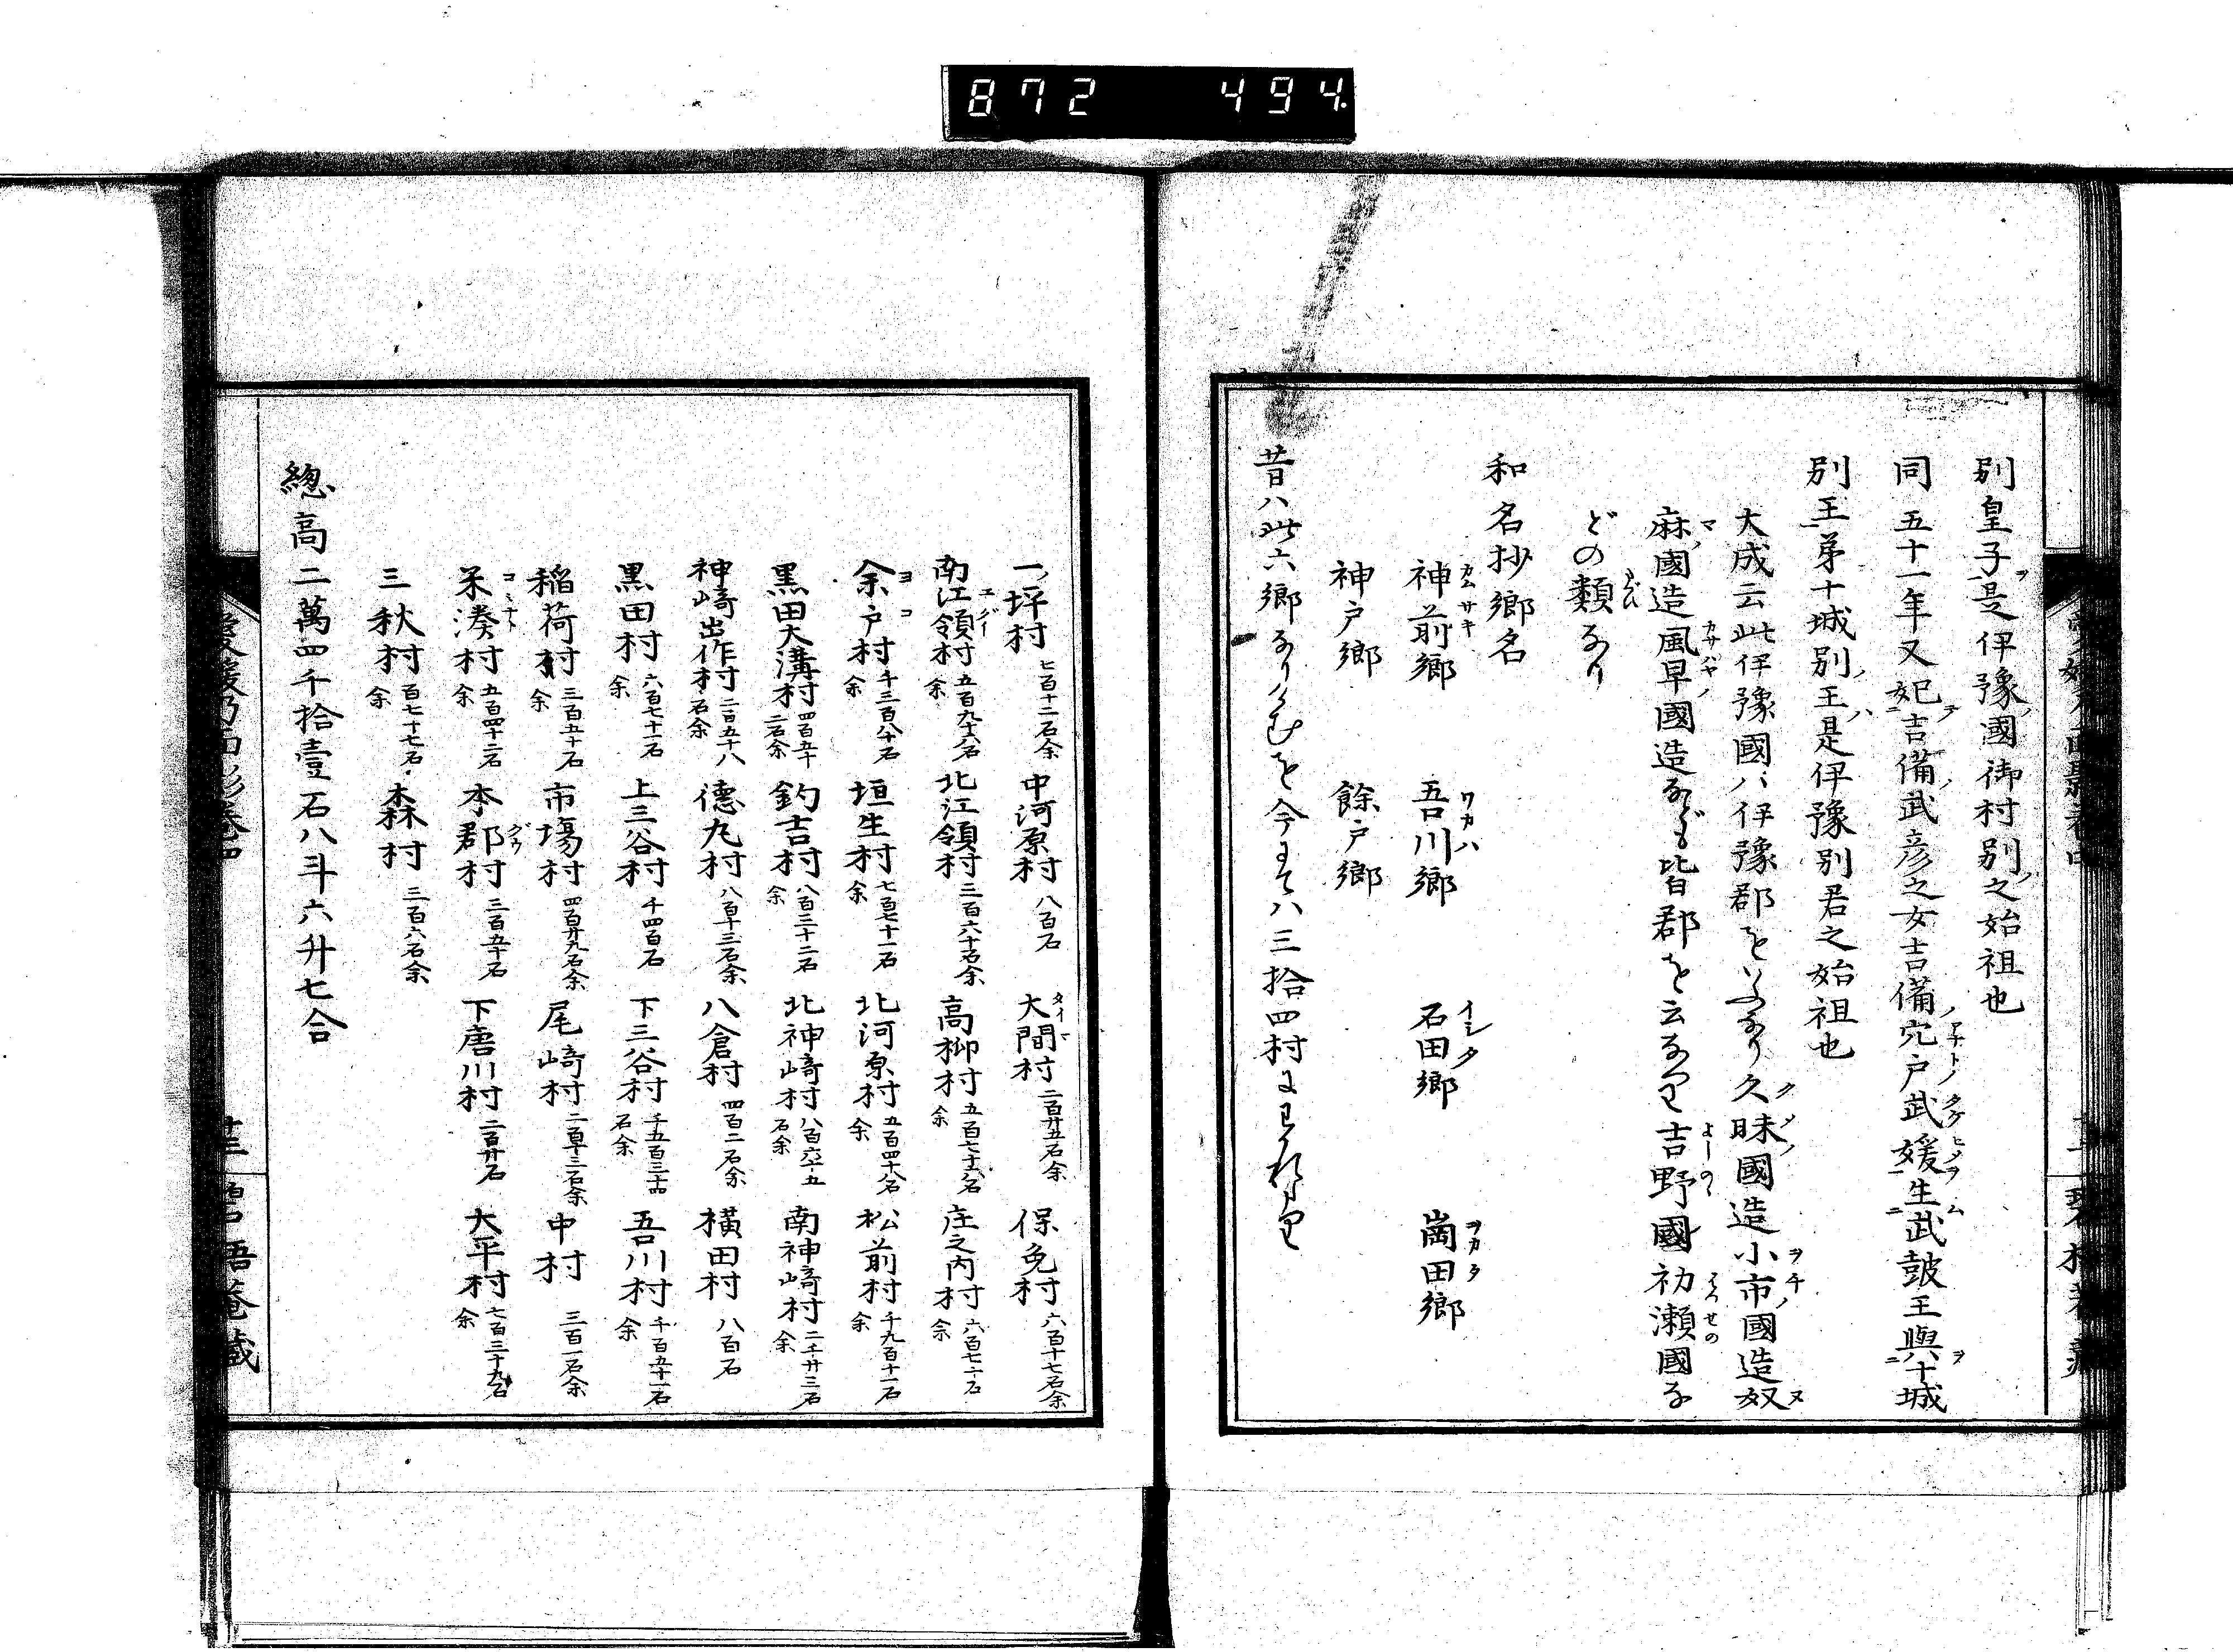 872 494
別皇子是伊豫國御村別之始祖也
同五十一年又妃吉備武彦之女吉備穴戸武媛生武皷王與十城
別王弟十城別王是伊豫別君之始祖也
大成云此伊豫國ハ伊豫郡をいふなり久昧國造小市國造奴
麻國造風早國造なども皆郡を云なり吉野國初瀬國な
どの類なり
和名抄郷名
神前郷 吾川郷 石田郷 崗田郷
神戸郷 餘戸郷
昔ハ此六郷なりけむを今にてハ三拾四村にわかれたり
一坪村 七百十二石余 中河原村 八百石 大間村 二百廿五石余 保免村 六百十七石余
南江領村 五百九十六石余 北江領村 三百六十石余 高柳村 五百七十六石余 庄之内村 六百七十石余
余戸村 千三百八十石余 垣生村 七百七十一石余 北河原村 五百四十八石余 松前村 千九百十一石余
黒田大溝村 四百五十二石余 釣吉村 八百三十二石余 北神崎村 八百六十五石余 南神崎村 二千廿三石余
神崎出作村 二百五十八石余 德丸村 八百十三石余 八倉村 四百二石余 横田村 八百石
黒田村 六百七十一石余 上三谷村 千四百石 下三谷村 千五百三十四石余 吾川村 千百五十一石余
稲荷村 三百五十石余 市場村 四百廿九石余 尾崎村 二百十三石余 中村 三百一石余
米湊村 五百四十二石余 本郡村 三百五十石 下唐川村 二百廿石 大平村 七百三十九石余
三秋村 百七十七石余 森村 三百六石余
總高二萬四千拾壹石八斗六升七合
愛媛乃面影巻四